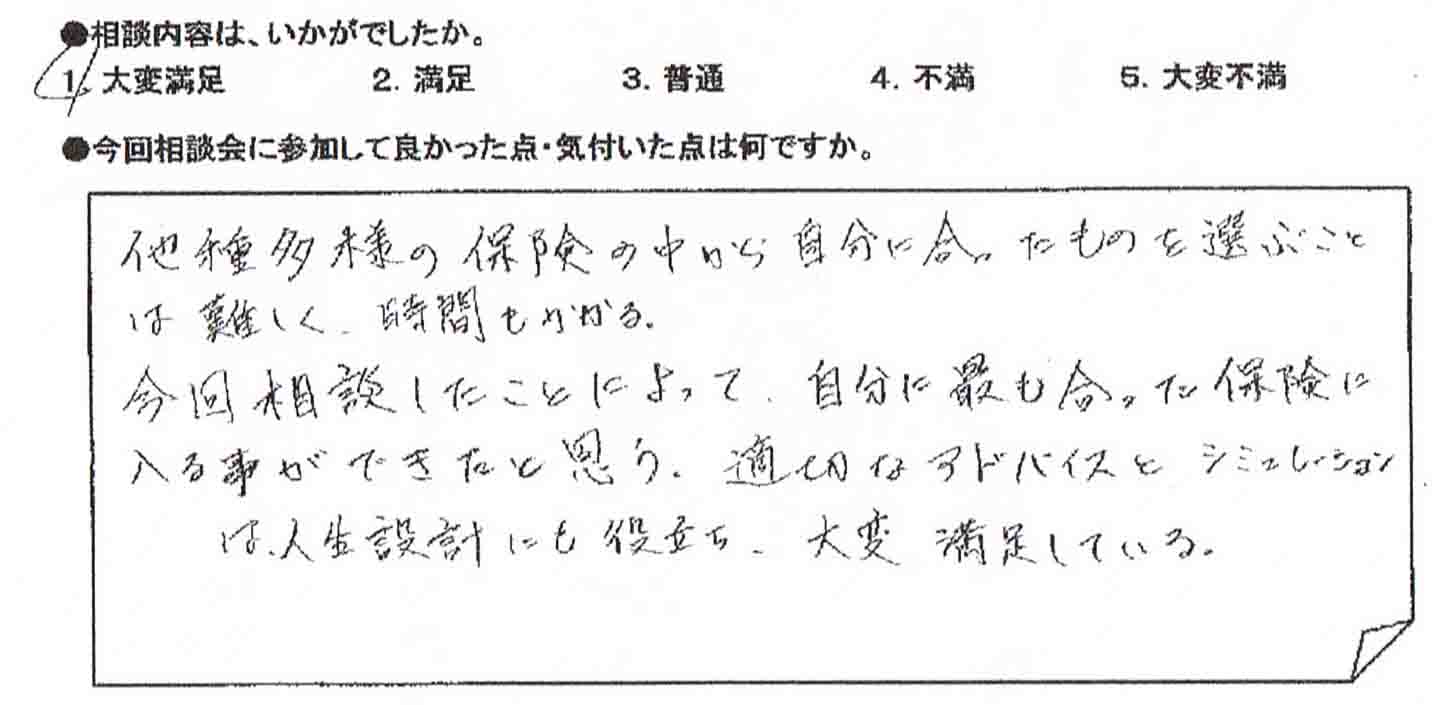 ●相談内容は、いかがでしたか。
1. 大変満足 2. 満足 3. 普通 4. 不満 5. 大変不満
●今回相談会に参加して良かった点・気付いた点は何ですか。
他種多様の保険の中から自分に合ったものを選ぶこと
は難しく、時間もかかる。
今回相談したことによって、自分に最も合った保険に
入る事ができたと思う。適切なアドバイスとシミュレーション
は、人生設計にも役立ち、大変満足している。